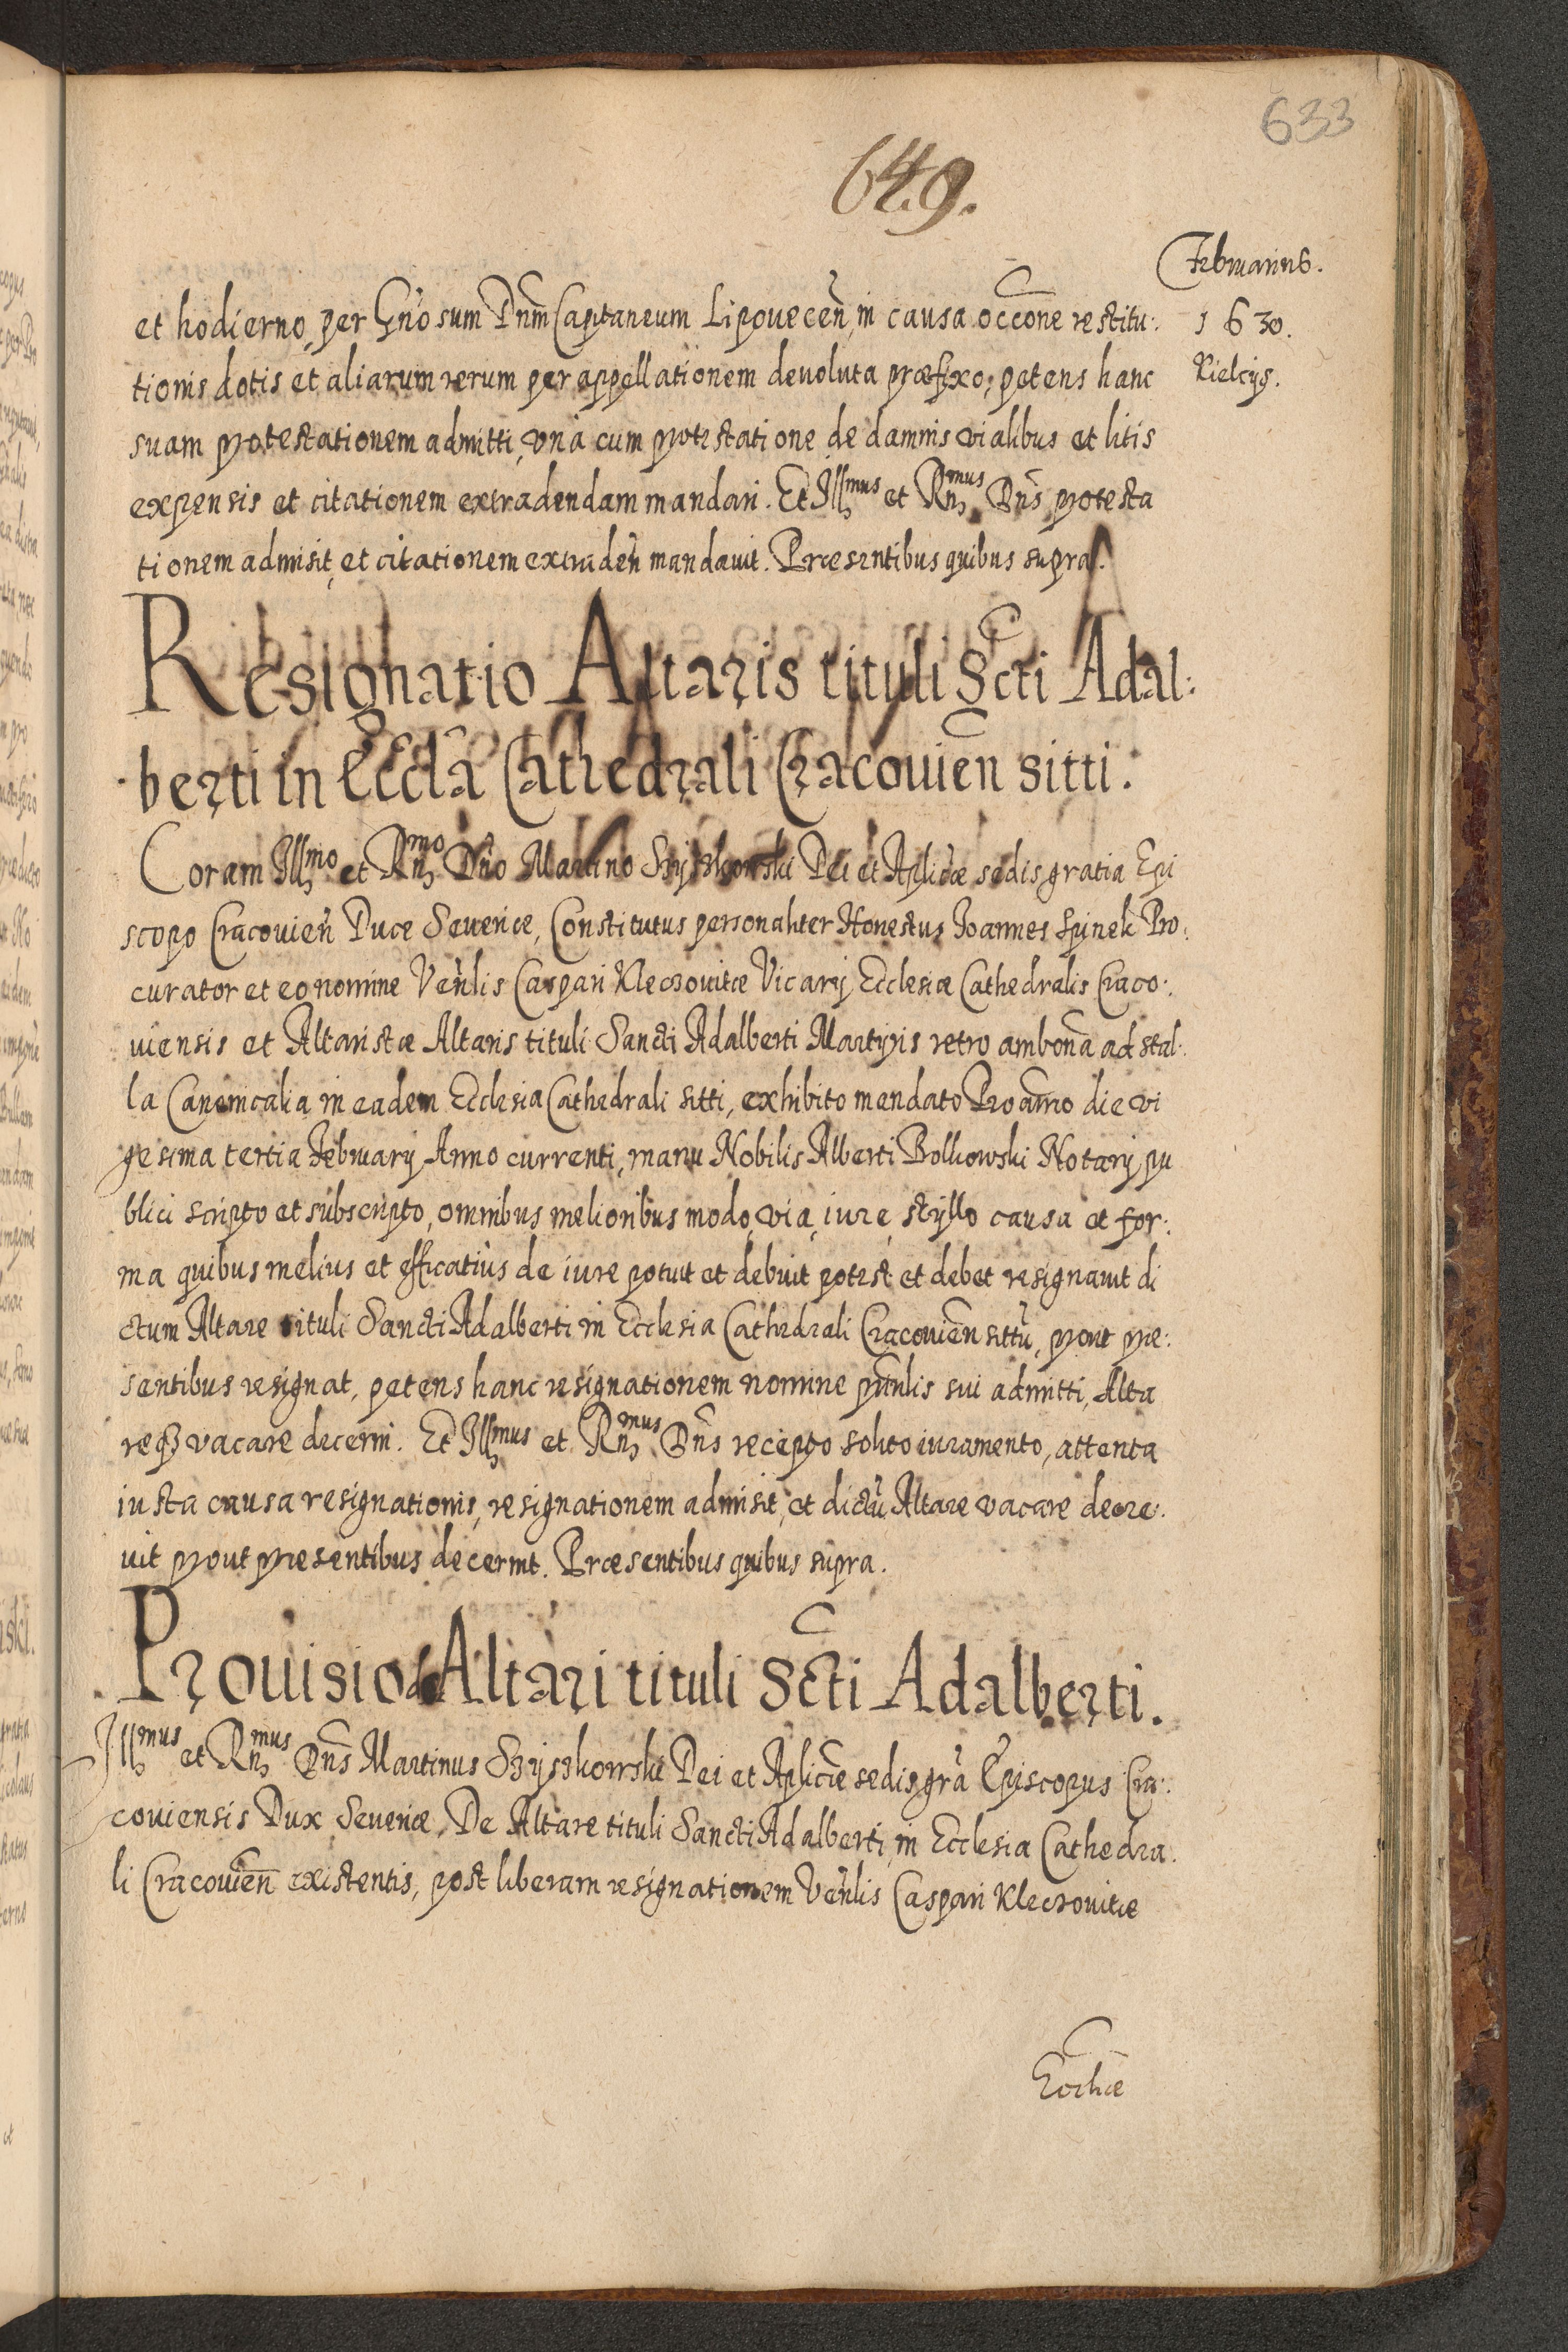 633
649.
Februarius.
1630.
Kielcijs.
et hodierno, per Gñosum Dnm̃ Capitaneum Lipouecen̄, in causa occõne restitu:
tionis dotis et aliarum rerum per appellationem deuoluta præfixo, petens hanc
suam protestationem admitti, vnà cum protestatione de damnis vialibus et litis
expensis et citationem extradendam mandari. Et Illmus et Rnmus Dñs protesta
tionem admisit, et citationem extraden̄ mandauit. Præsentibus quibus supra.
Resignatio Altaris tituli Scti Adal:
berti in Eccla Cathedrali Cracouien̄ sitti.
Coram Illmo et Rnmo Dño Martino Szyszkowski Dei et Aplicæ sedis gratia Epi
scopo Cracouien̄ Duce Seueriæ, Constitutus personaliter Honestus Joannes Spinek Pro:
curator et eo nomine Ven̄lis Caspari Kleczouitæ Vicarij Ecclesiæ Cathedralis Craco:
uiensis et Altaristæ Altaris tituli Sancti Adalberti Martyris retro ambonã ad stal:
la Canonicalia in eadem Ecclesia Cathedrali sitti, exhibito mandato Procũrio die vi
gesima tertia February Anno currenti, manu Nobilis Alberti Bolkowski Notarij pu
blici scripto et subscripto, omnibus melioribus modo, via, iure, styllo causa et for:
ma quibus melius et efficatiùs de iure potuit et debuit potest et debet resignauit di
ctum Altare tituli Sancti Adalberti in Ecclesia Cathedrali Cracouien̄ sittũ, prout præ:
sentibus resignat, petens hanc resignationem nomine prĩnlis sui admitti, Alta
reqꝫ vacare decerni. Et Illmus et Rnmus Dñs recepto solito iuramento, attenta
iusta causa resignationis, resignationem admisit, et dictũ Altare vacare decre:
uit prout præsentibus decernit. Præsentibus quibus supra.
Prouisio de Altari tituli Scti Adalberti.
Illmus et Rnmus Dñs Martinus Szyszkowski Dei et Aplicæ sedis grã Episcopus Cra:
couiensis Dux Seueriæ, De Altare tituli Sancti Adalberti, in Ecclesia Cathedra:
li Cracouien̄ existentis, post liberam resignationem Ven̄lis Caspari Kleczouitæ
Eccliæ